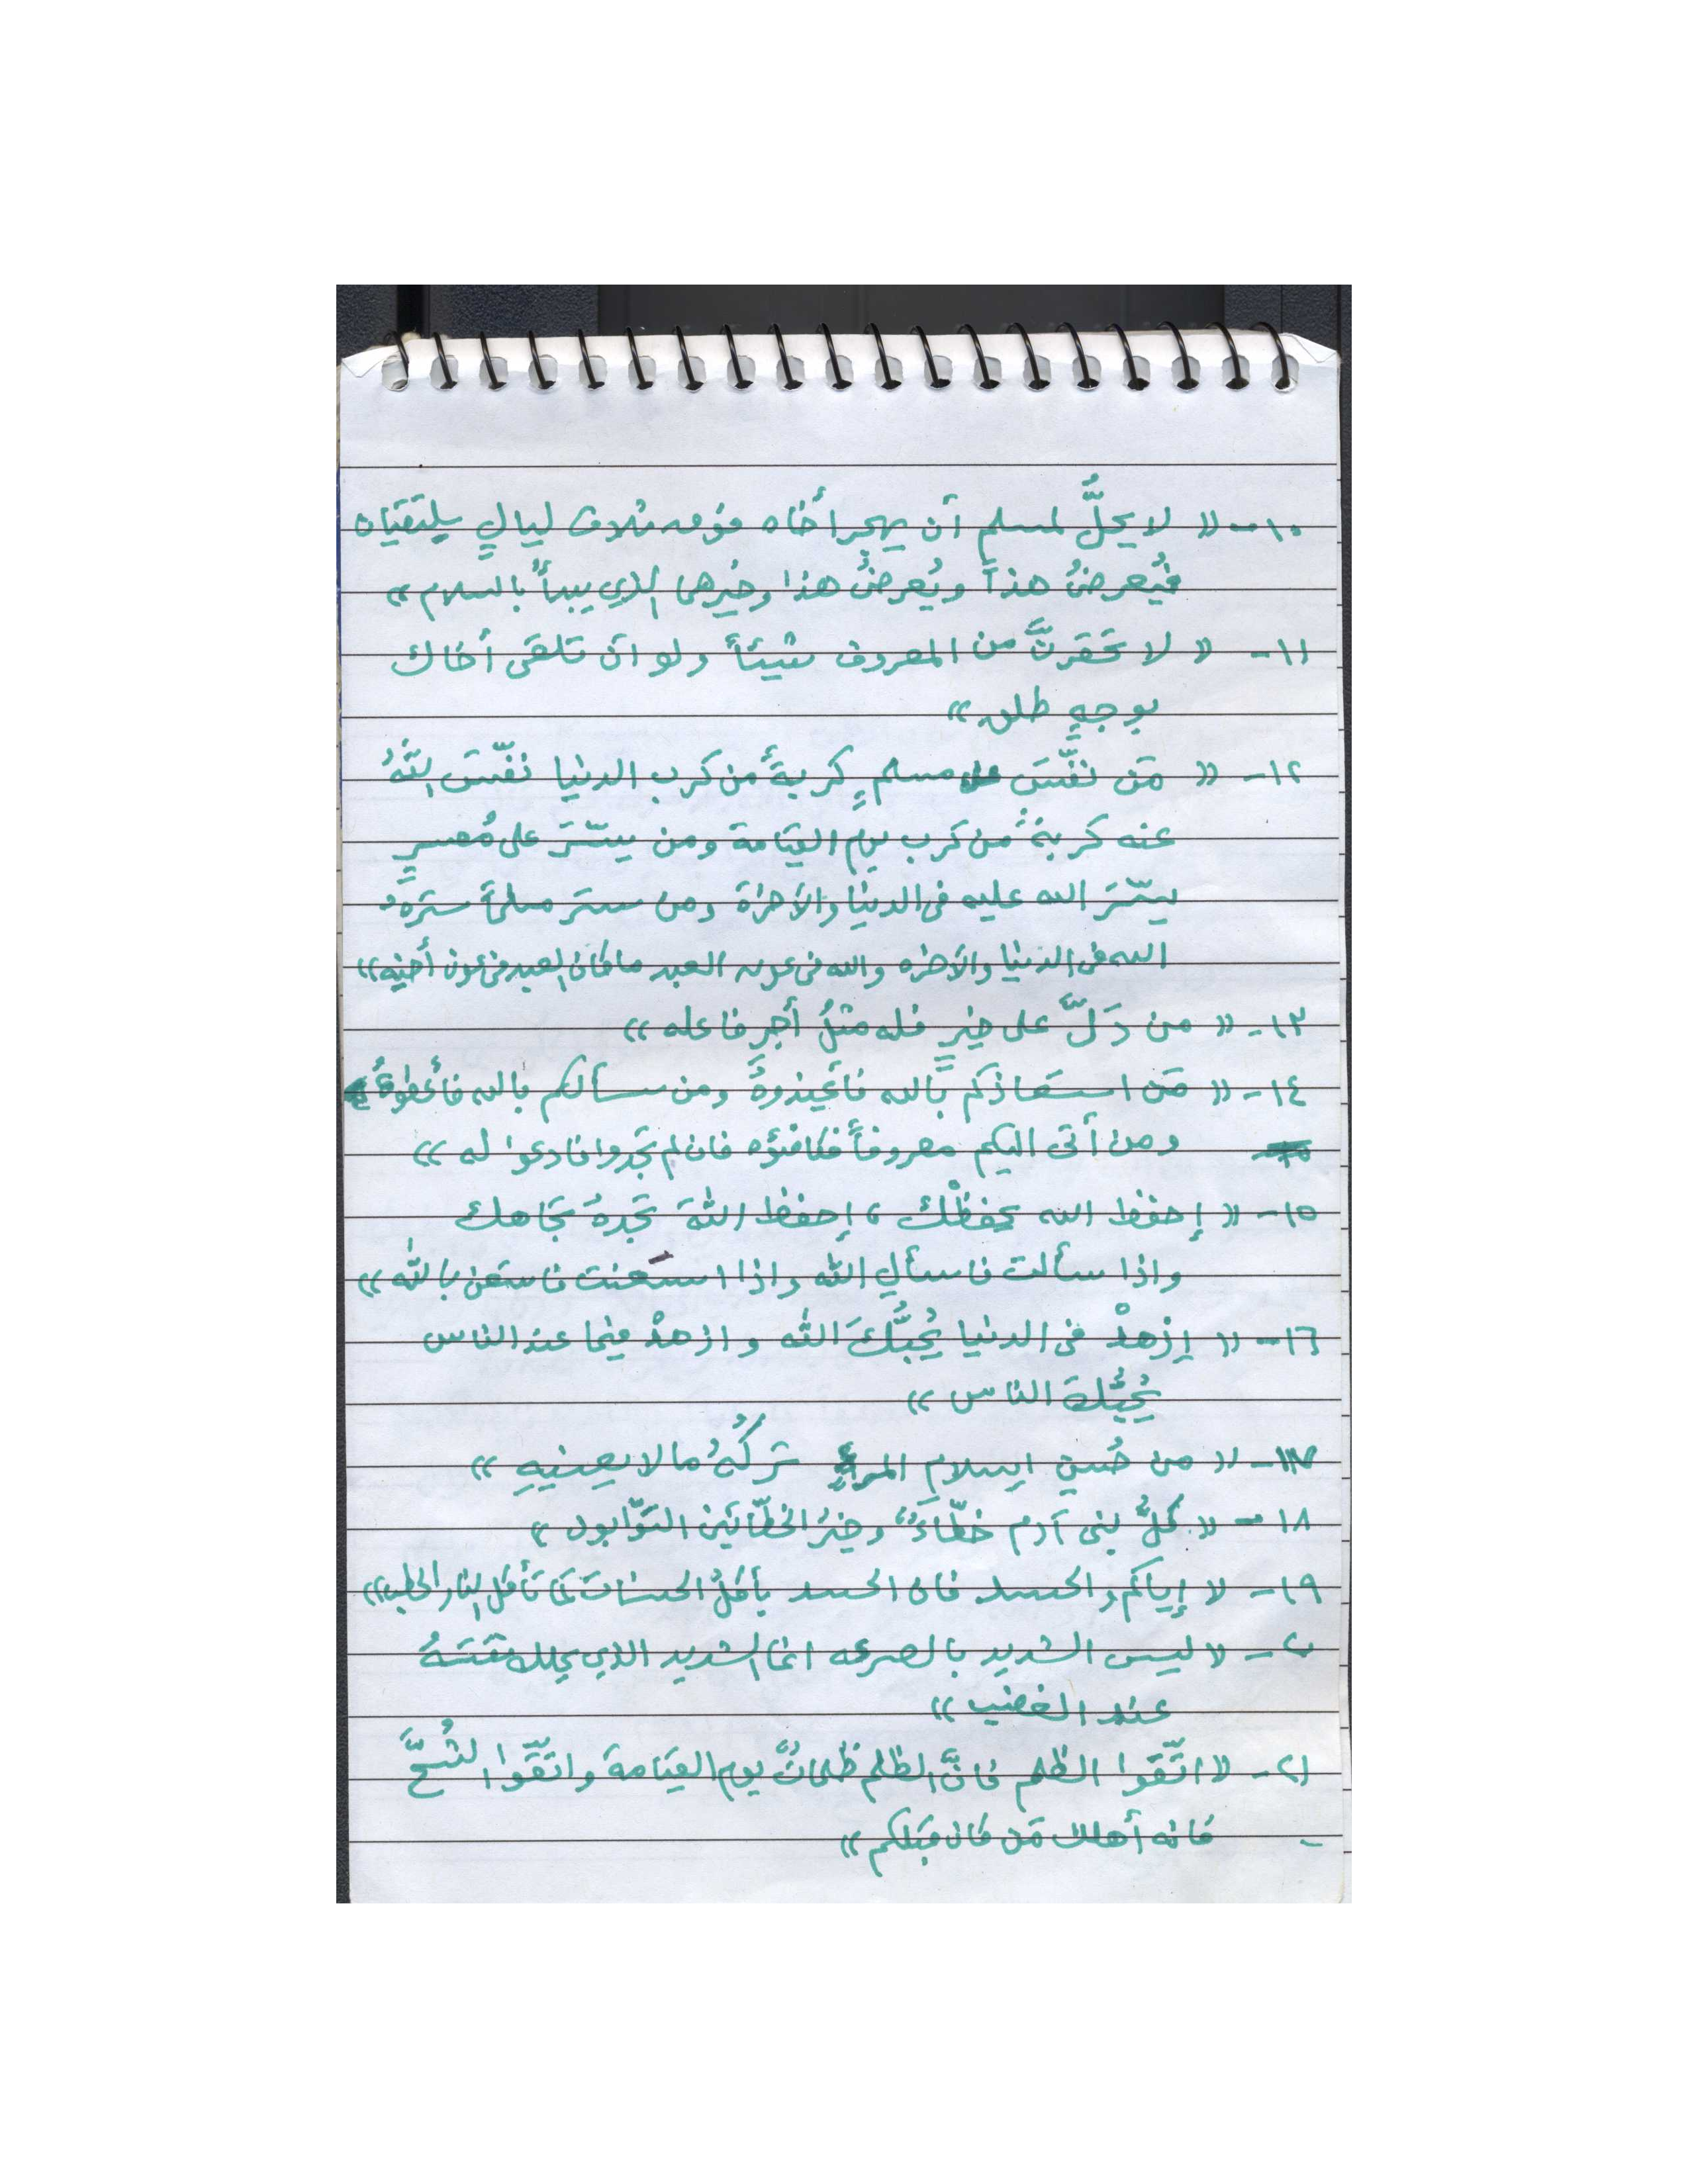 ١٠- « لا يحلُّ لمسلم أن يهجر أخاه فوق ثلاث ليالٍ يلتقيان
فيُعرضُ هذا ويُعرضُ هذا وخيُرهما الذي يبدأُ بالسلام »
١١- « لا تحقرنَّ من المعروف شيئاً ولو ان تلقى أخاك
بوجهٍ طلق »
١٢- « مَن نفّسَ عن مسلمٍ كربةً من كرب الدنيا نفّسَ اللهُ
عنه كربةً من كرب يوم القيامة ومن يسّرَ على مُعسرٍ
يسّرَ الله عليه في الدنيا والآخرة ومن ستر مسلماً سترَهُ
الله في الدنيا والآخره والله في عون العبد ما كان العبد في عون أخيه »
١٣- « من دَلّ على خيرٍ فله مثلُ أجرِ فاعله »
١٤- « مَن استعاذكم بالله فأعيذوهُ ومن سألكم بالله فأعطوهُ
ومن أتى اليكم معروفاً فكافئوه فان لم تجدوا فادعوا له »
١٥- « إحفظ الله يحفظْك ، إحفظ اللهَ تجدهُ تجاهك
واذا سألت فاسألِ الله واذا استعنت فاستعن بالله »
١٦- « إزهدْ في الدنيا يُحبُّكَ الله وازهدْ فيما عند الناس
يُحبُّكَ الناس »
١٧- « من حُسنِ اسلام المرءِ تركُهُ ما لا يعنيهِ »
١٨- « كلُّ بني آدم خطّاءٌ وخيرُ الخطّائين التوّابون »
١٩- « إياكم والحسد فان الحسد يأكلُ الحسنات كما تأكل النار الحطب »
٢٠- « ليس الشديد بالصرعه انما الشديد الذي يملك نفسَهُ
عند الغضب »
٢١- « اتّقوا الظلم فانَّ الظلم ظلماتٌ يوم القيامة واتّقوا الشُحَّ
فانه أهلك مَن كان قبلكم »